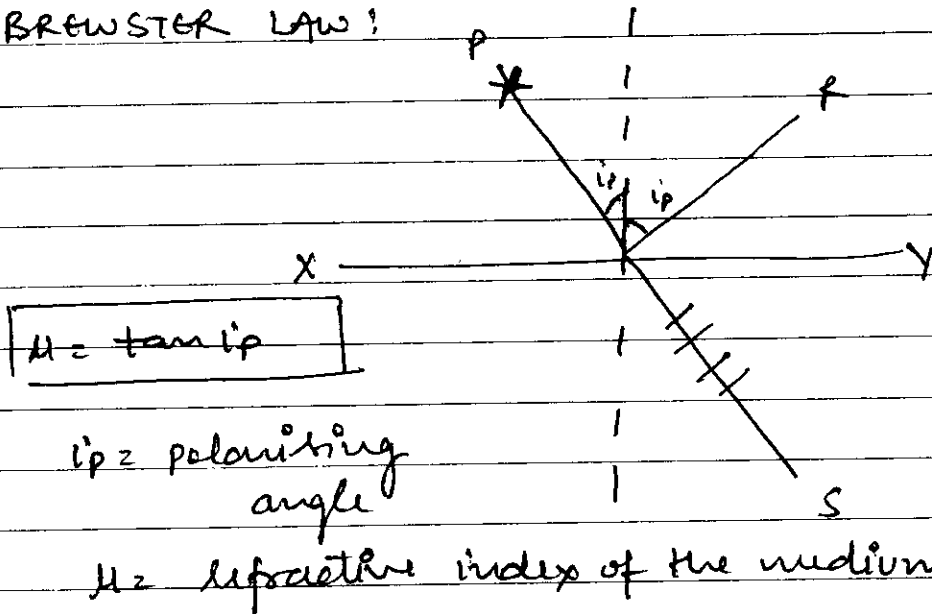 BREWSTER LAW!
P
R
ip
ip
X
Y
μ = tan ip
ip = polarising
angle
S
μ = refractive index of the medium